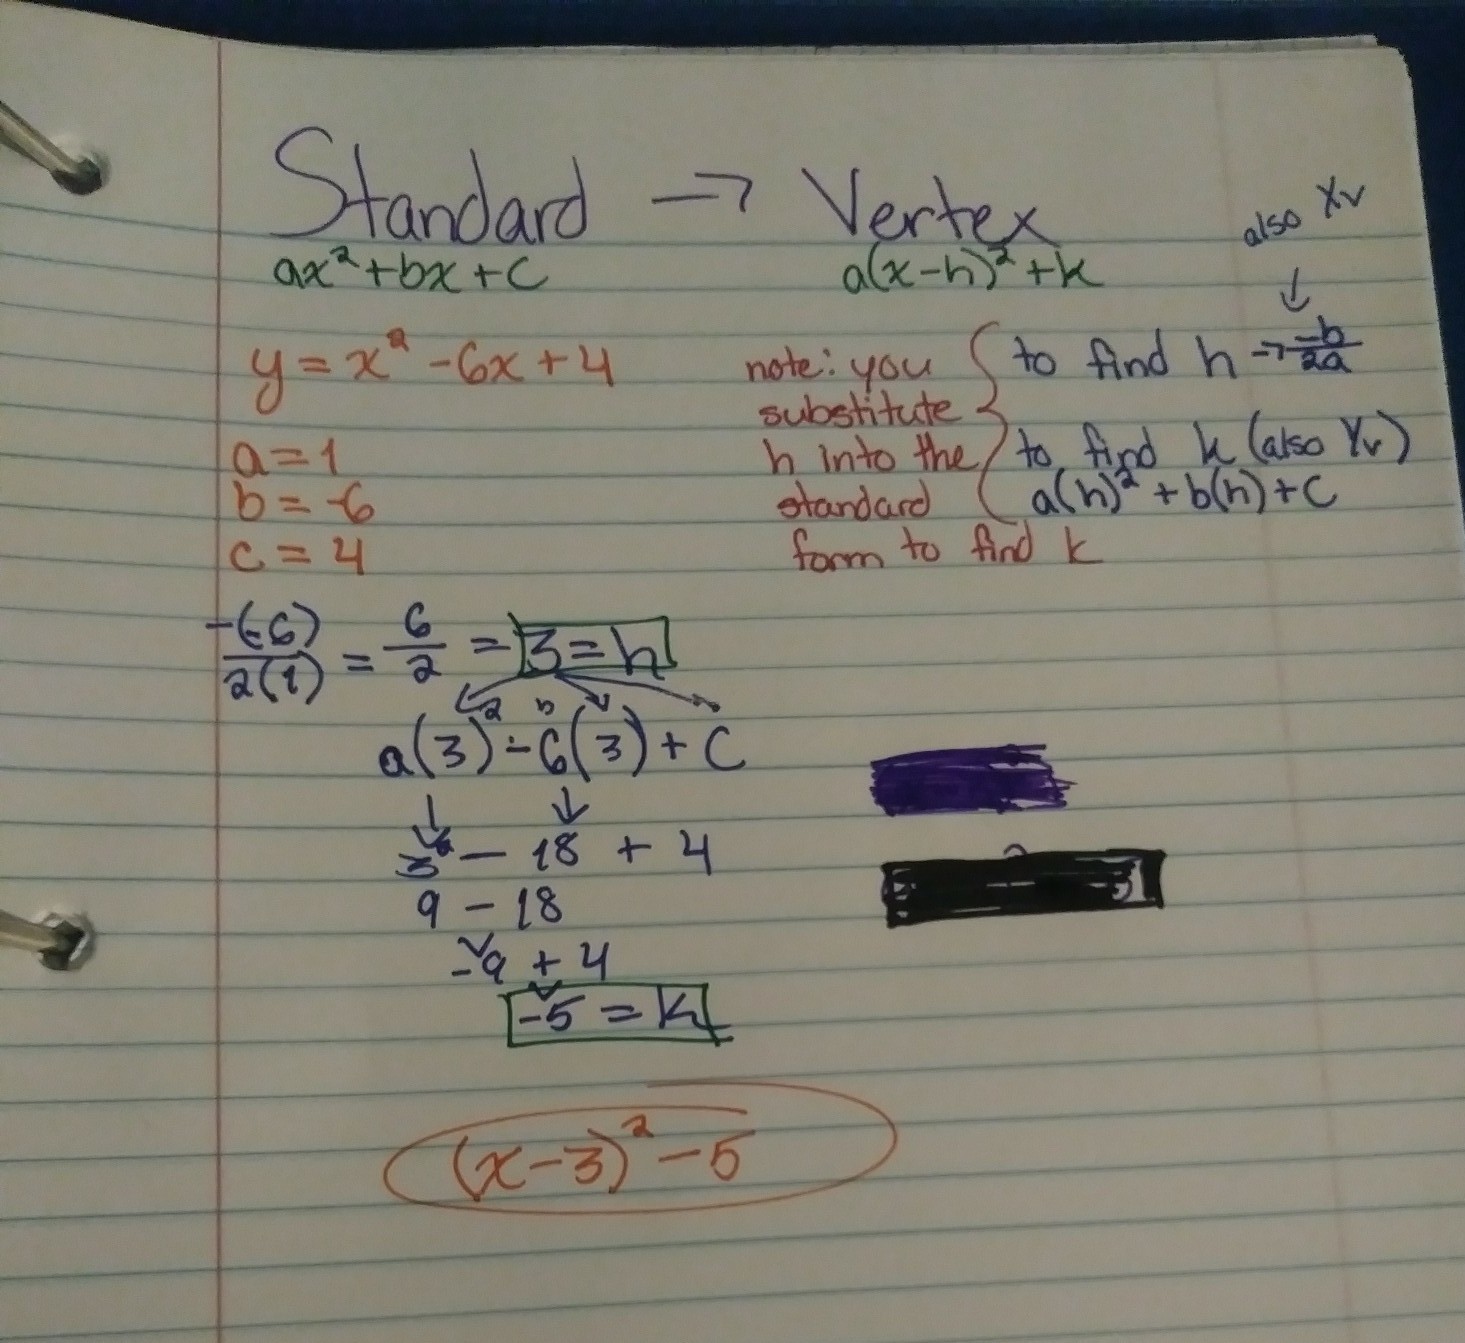 Standard → Vertex
ax² + bx + c
a(x-h)² + k
also Xv
↓
y = x² - 6x + 4
a = 1
b = -6
c = 4
note: you
substitute
h into the
standard
form to find k
to find h → -b/2a
to find k (also Yv)
a(h)² + b(h) + c
-(-6)/2(1) = 6/2 = 3 = h
b
a(3)² - 6(3) + C
3² - 18 + 4
9 - 18
-9 + 4
-5 = k
(x-3)² - 5